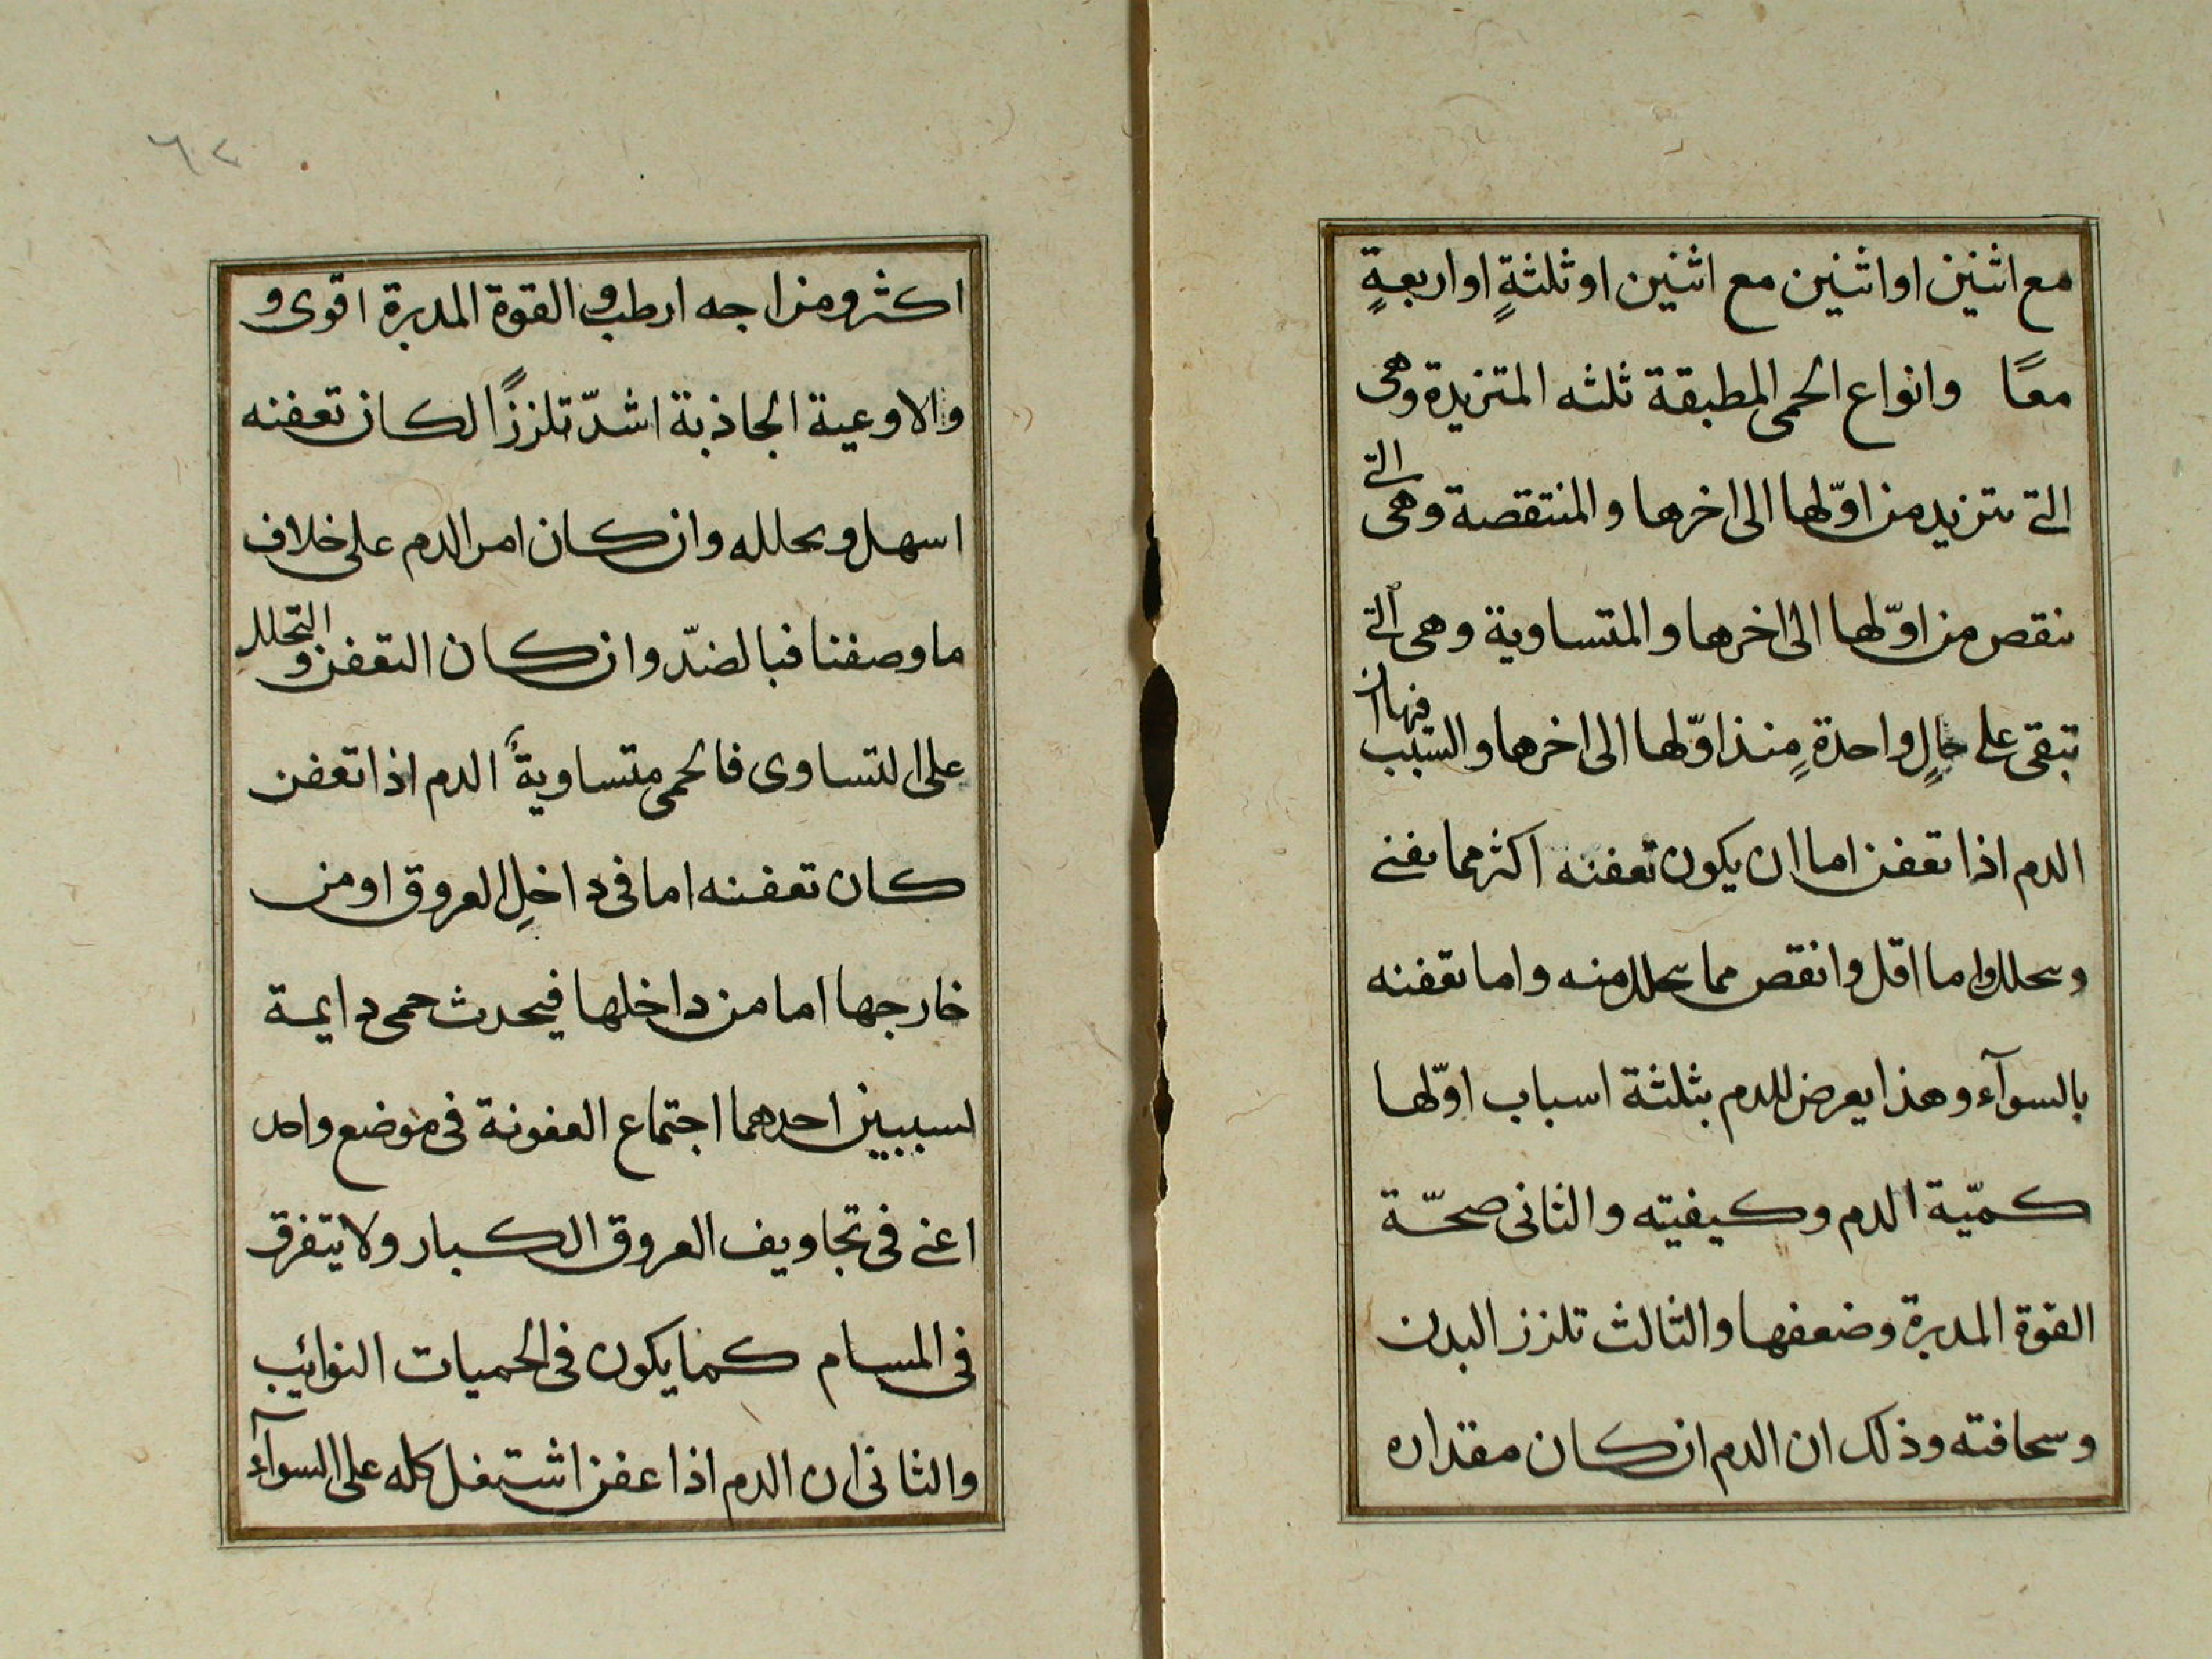 مع اثنين او اثنين مع اثنين او ثلثةٍ او اربعةٍ
معًا وانواع الحمى المطبقة ثلثه المتزيدة وهى
التى تتزيد من اوّلها الى اخرها والمنتقصة وهى التى
تنقص من اوّلها الى اخرها والمتساوية وهى التى
تبقى على حالٍ واحدةٍ منذ اوّلها الى اخرها والسبب فيها ان
الدم اذا تعفن اما ان يكون تعفنه اكثر مما يفنى
ويتحلل واما اقل وانقص مما يتحلل منه واما تعفنه
بالسوآء وهذا يعرض للدم بثلثة اسباب اوّلها
كميّة الدم وكيفيته والثانى صحّة
القوة المدبرة وضعفها والثالث تلزز البدن
وسخافته وذلك ان الدم ان كان مقداره
٦٢
اكثر ومزاجه ارطب والقوة المدبرة اقوى و
والاوعية الجاذبة اشدّ تلززًا لكان تعفنه
اسهل وتحلله وان كان امر الدم على خلاف
ما وصفنا فبالضدّ وان كان التعفن والتحلل
على التساوى فالحمى متساويةً الدم اذا تعفن
كان تعفنه اما فى داخلِ العروق او من
خارجها اما من داخلها فيحدث حمى دايمة
لسببين احدهما اجتماع العفونة فى موضع واحد
اعنى فى تجاويف العروق الكبار ولا يتفرق
فى المسام كما يكون فى الحميات النوائب
والثانى ان الدم اذا عفن اشتعل كله على السوآء